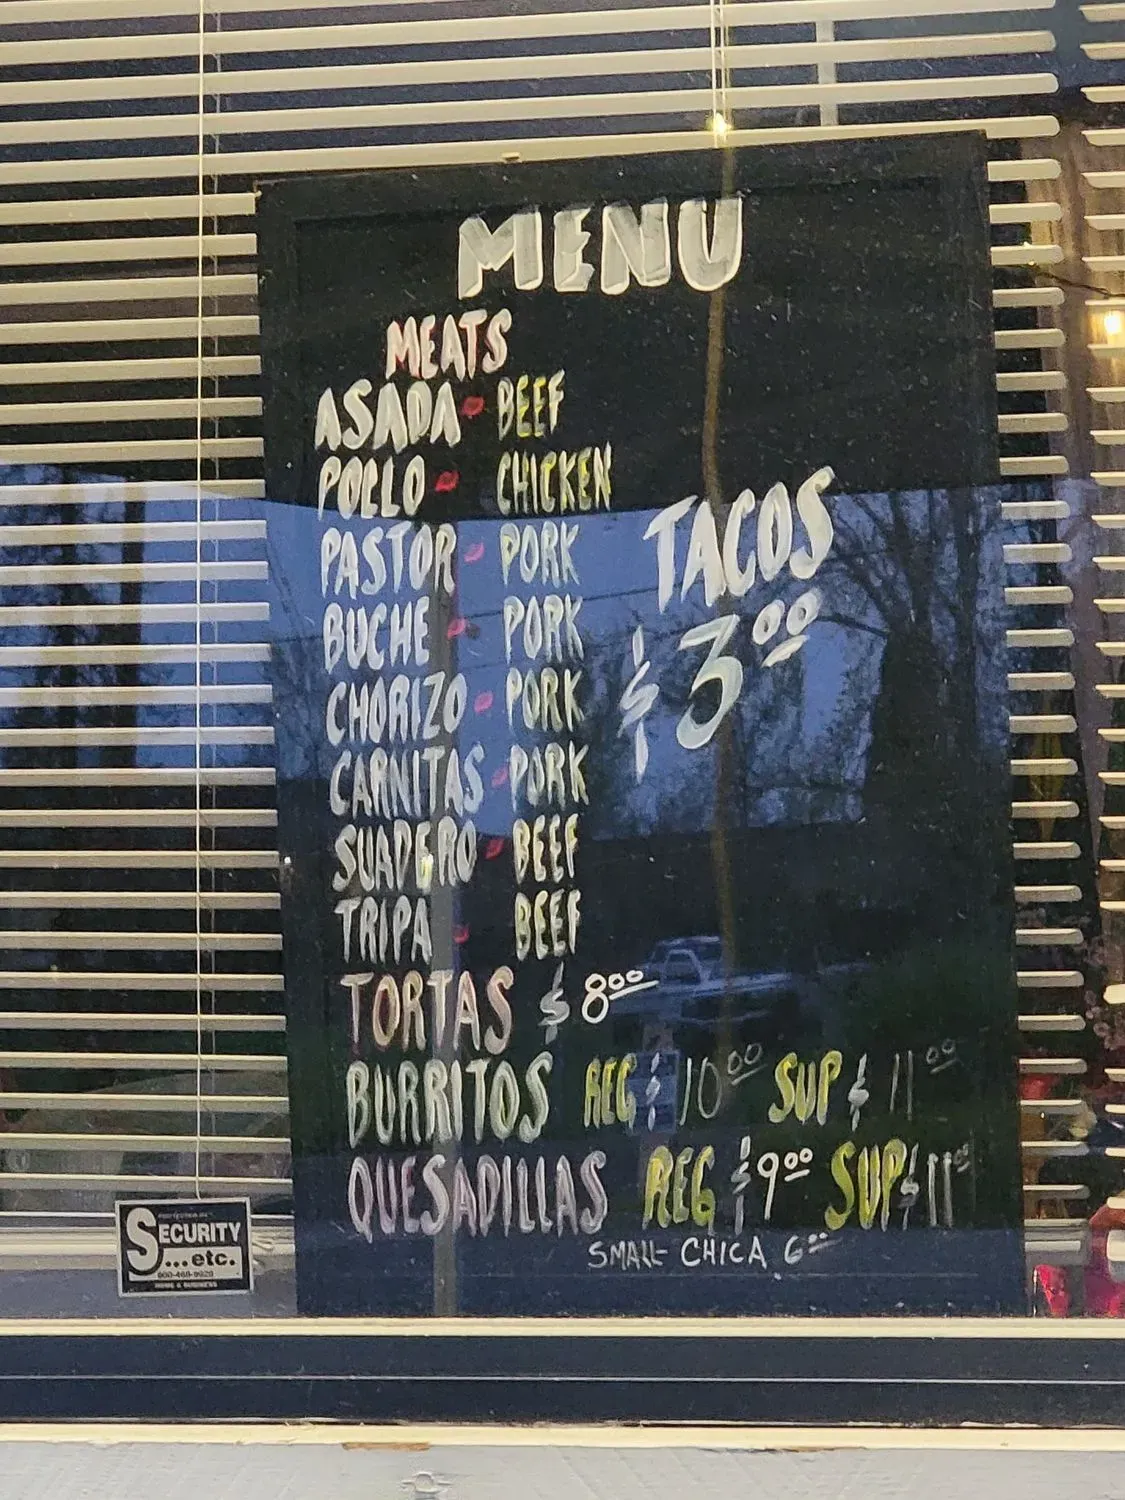 MENU
MEATS
ASADA - BEEF
POLLO - CHICKEN
PASTOR - PORK
BUCHE - PORK
CHORIZO - PORK
CARNITAS - PORK
SUADERO - BEEF
TRIPA - BEEF
TACOS
$3.00
TORTAS $8.00
BURRITOS REG $10.00 SUP $11.00
QUESADILLAS REG $9.00 SUP $11.00
SMALL CHICA 6.00
SECURITY
...etc.
800-468-9929
HOME & BUSINESS